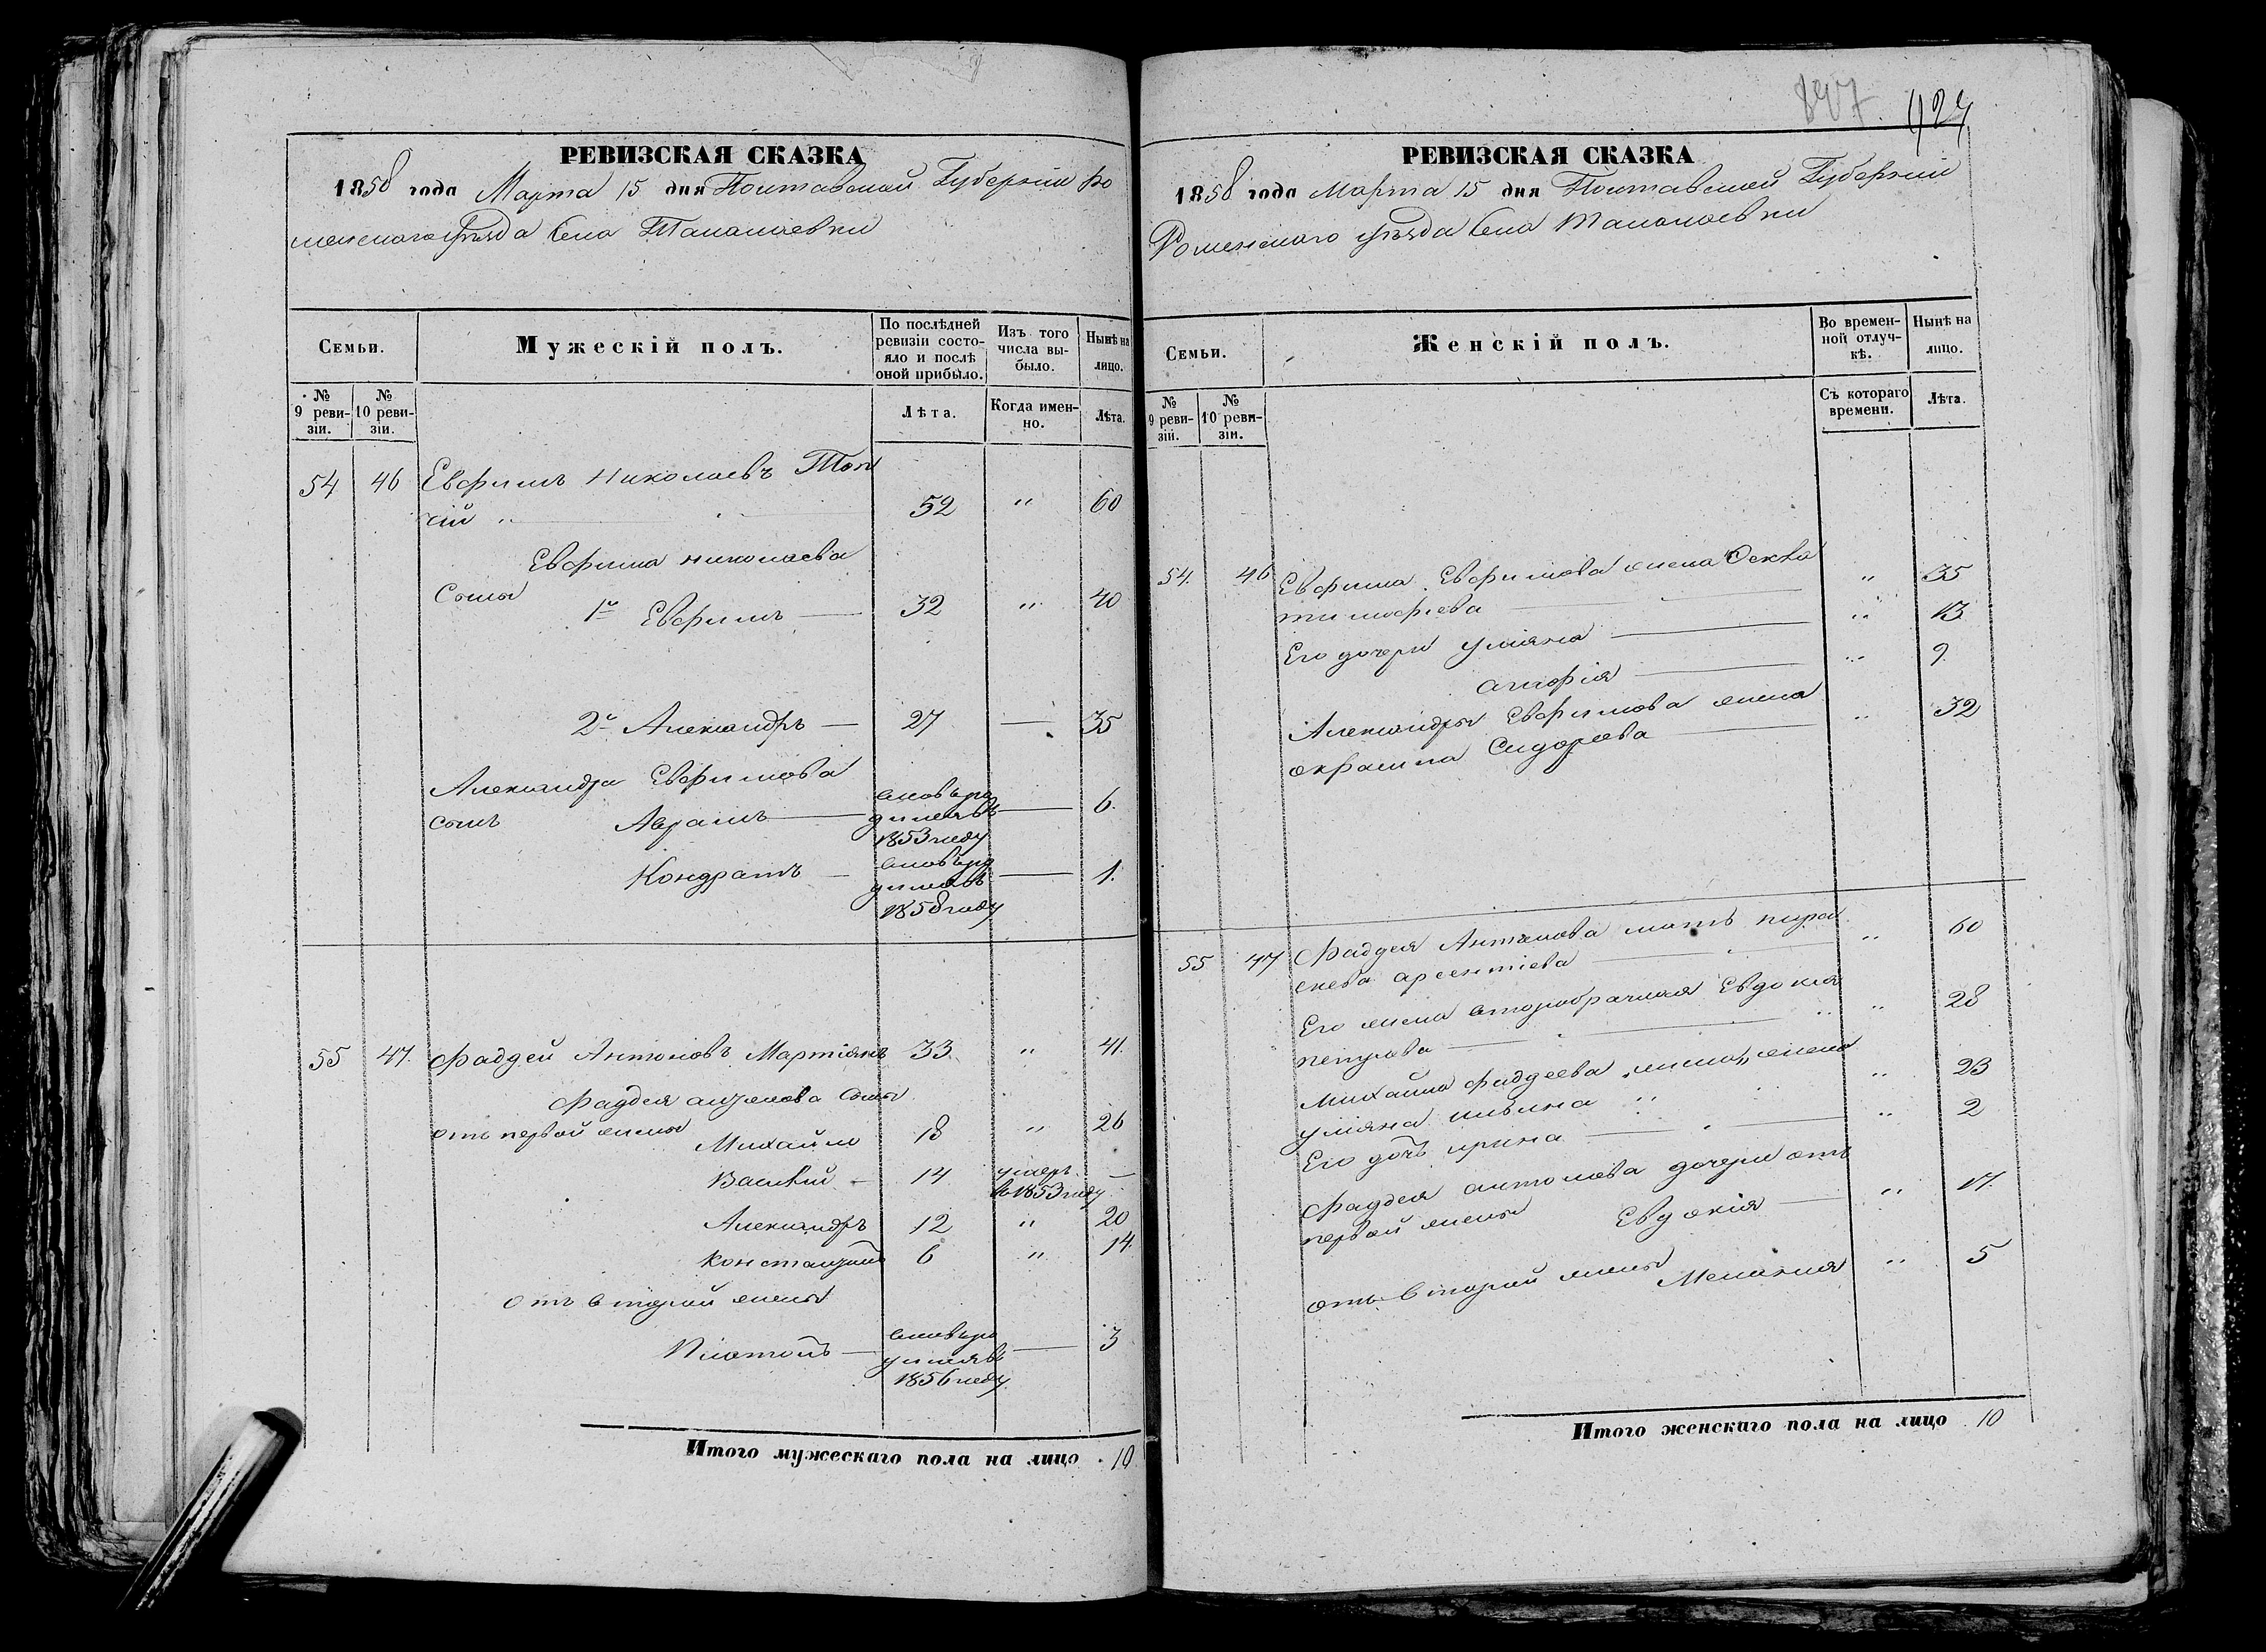 РЕВИЗСКАЯ СКАЗКА
1858 года Марта 15 дня Полтавской Губернии Ро
менского уѣзда Села Талалаевки
Семьи.
Мужескій полъ.
По послѣдней
ревизіи состо-
яло и послѣ
оной прибыло.
Изъ того
числа вы-
было.
Нынѣ на
лицо.
№
9 реви-
зіи.
№
10 реви-
зіи.
Лѣта.
Когда имен-
но.
Лѣта.
54 46 Евфимъ Николаевъ
кій " 52 " 60
Евфима Николаева
Сыны 1й Евфимъ 32 " 40
2й Александръ 27 — 35
Александра Евфимова
сынъ Аврамъ — 6.
1853 году
Кондратъ — 1.
1858 году
55 47. Фаддей Антоновъ Мартіянъ 33. " 41.
Фаддея антонова Сыны
отъ первой жены Михайло 18 " 26
Василій 14 умеръ —
в 1853 году
Александръ 12 " 20
Константинъ 6 " 14.
отъ второй жены
Платонъ — 3
1856 году
Итого мужескаго пола на лицо 10
897. 424
РЕВИЗСКАЯ СКАЗКА
1858 года Марта 15 дня Полтавской Губерніи
Роменского уѣзда Села Талалаевки
Семьи.
Женскій полъ.
Во времен-
ной отлуч-
кѣ.
Нынѣ на
лицо.
№
9 реви-
зіи.
№
10 реви-
зіи.
Съ котораго
времени.
Лѣта.
54. 46 Евфима Евфимова жена Фекла " 35
тимофіева
Его дочери уліяна " 13
агафія " 9
Александра Евфимова жена
Сидорова " 32
55 47 Фаддея Антонова мать пара
скева арсентіева " 60
Его жена второбрачная Евдокія
петрова " 28
Михайла фаддеева жена
уліяна ильина " 23
Его дочь ирина " 2
Фаддея антонова дочери отъ
первой жены Евдокія " 17.
отъ второй жены Меланія " 5
Итого женскаго пола на лицо 10